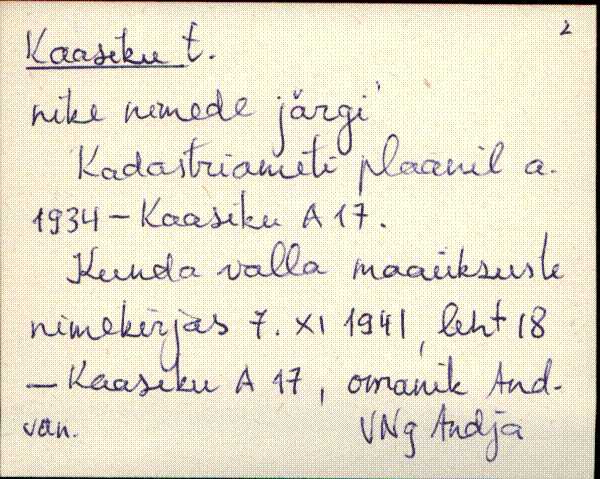 2
Kaasiku t.
nike nimede järgi
Kadastriameti plaanil a.
1934 – Kaasiku A 17.
Kunda valla maaüksuste
nimekirjas 7. XI 1941, leht 18
– Kaasiku A 17, omanik And-
van.
VNg Andja